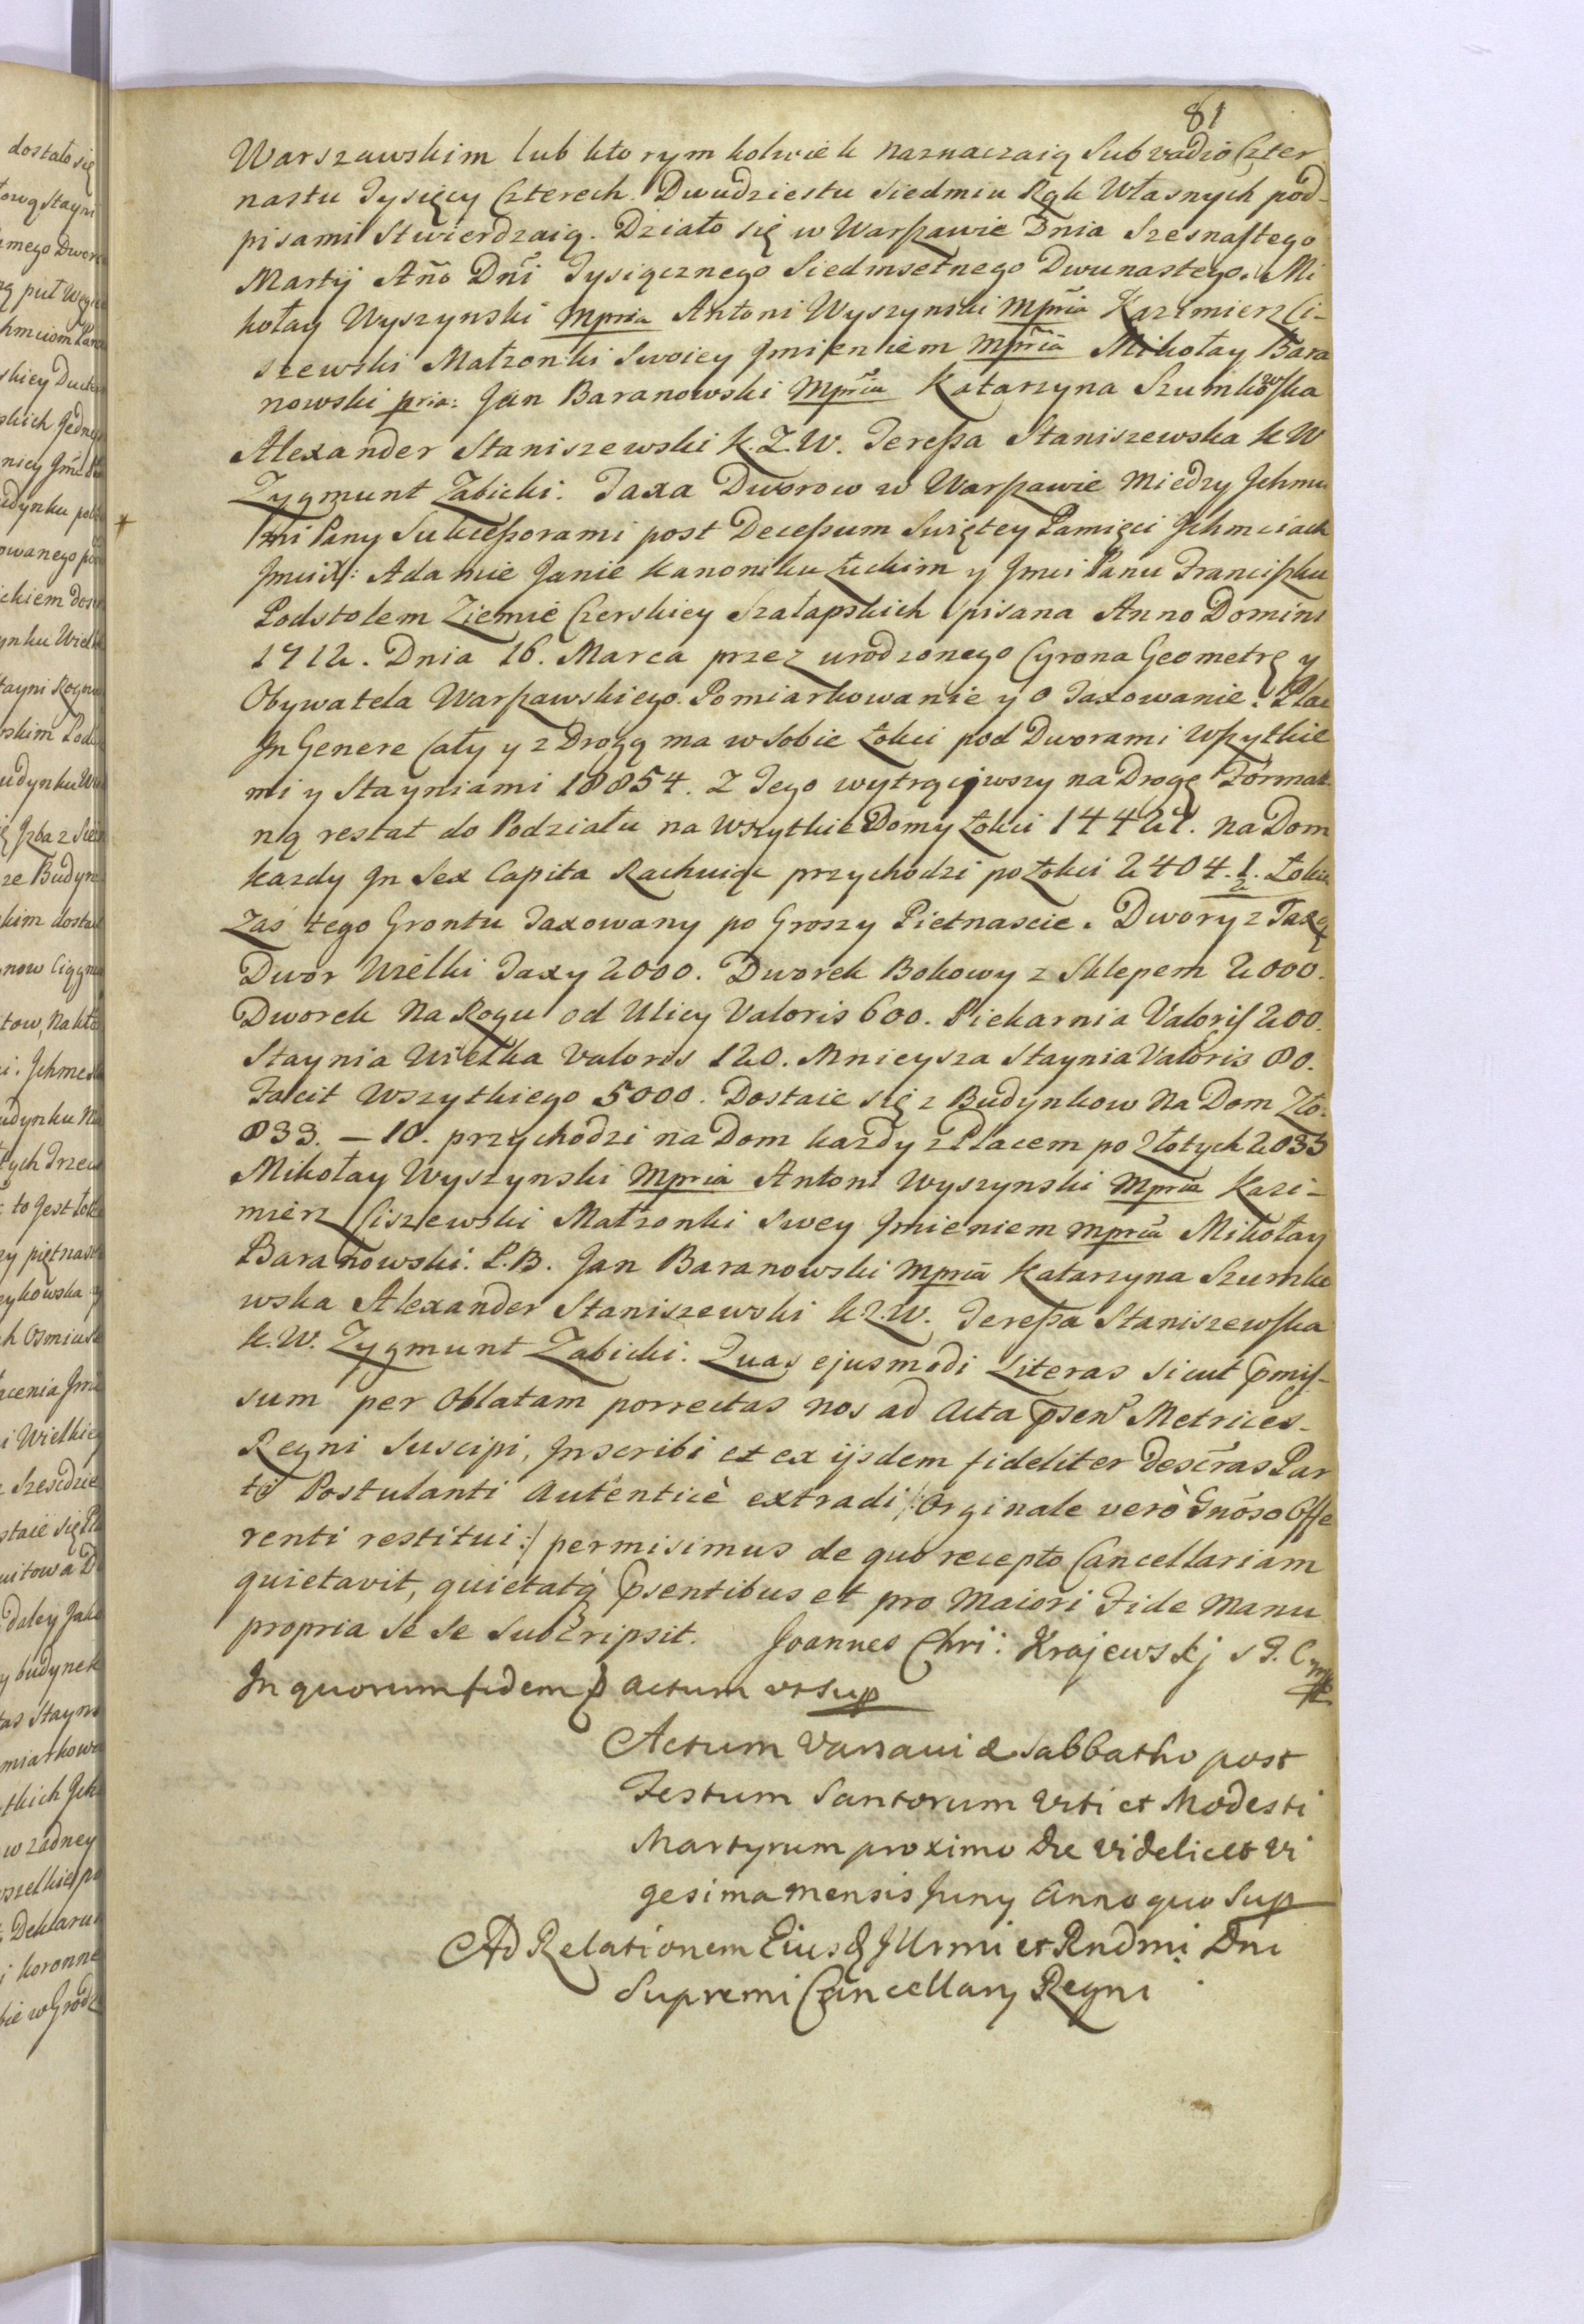 81
Warszawskim lub ktorym kolwiek naznaczaią Sub vadio Czter
nastu Tysięcy Czterech. Dwudziestu Siedmiu Rąk Własnych pod-
pisami Stwierdzaią. Działo się w Warszawie Dnia Szesnastego
Martij Ano Dni Tysiącznego Siedmsetnego Dwunastego. Mi
kołay Wyszynski Mpria Antoni Wyszynski Mpria Kazimierz Ci-
szewski Małzonki Swoiey Jmieniem Mpria Mikołay Bara
nowski pria: Jan Baranowski Mpria Katarzyna Szumkowska
Alexander Staniszewski K.Z.W. Teressa Staniszewska K W
Zygmunt Zabicki. Taxa Dworow w Warszawie Miedzy Jchmu
mi Pany Sukcessorami post Decessum Swiętey Pamięci Jchmciach
Jmci X: Adamie Janie Kanoniku Łuckim y Jmci Panu Franciszku
Podstolem Ziemie Czerskiey Szałapskich spisana Anno Domini
1712. Dnia 16. Marca przez urodzonego Cyrona Geometrę y
Obywatela Warszawskiego. Pomiarkowanie y o Taxowanie. Plac
Jn Genere Cały y z Drogą ma w Sobie Łokci pod Dworami Wszytkie
mi y Stayniami 18854. Z Tego wytrąciwszy na Drogę Forman
ną restat do Podziału na Wszytkie Domy Łokci 14427. na Dom
kazdy Jn Sex Capita Rachuiąc przychodzi po Łokci 2404.1/2. Łokieć
Zas tego Grontu Taxowany po Groszy Pietnascie. Dwory z Taxą
Dwor Wielki Taxy 2000. Dworek Bokowy z Sklepem 2000.
Dworek Na Rogu od Ulicy Valoris 600. Piekarnia Valoris 200.
Staynia Wielka Valoris 120. Mnieysza Staynia Valoris 80.
Facit Wszytkiego 5000. Dostaie się z Budynkow Na Dom Zło.
833. – 10. przychodzi na Dom kazdy z Placem po Złotych 2033
Mikołay Wyszynski Mpria Antoni Wyszynski Mpria Kazi-
mierz Ciszewski Małzonki Swey Jmieniem mpria Mikołay
Baranowski. P.B. Jan Baranowski Mpria Katarzyna Szumko
wska Alexander Staniszewski K.Z.W. Teressa Staniszewska
K.W. Zygmunt Zabicki. Quas ejusmodi Literas sicut pmis-
sum per Oblatam porrectas nos ad Acta psen Metrices-
Regni Suscipi, Jnscribi et ex ijsdem fideliter descras Par
te Postulanti Autenticè extradi /:Orginale verò Gnoso Offe
renti restitui:/ permisimus de quo recepto Cancellariam
quietavit, quietatq psentibus et pro Maiori Fide Manu
propria Se Se Subcripsit. Joannes Chri: Krajewskj
Jn quorum fidem p Actum ut Sup
Actum Varsaviae Sabbatho post
Festum Santorum Viti et Modesti
Martyrum proximo Die Videlicet Vi
gesima Mensis Juny Anno quo Sup
Ad Relationem Eiusd Jllrmi et Rndmi Dni
Supremi Cancellarij Regni